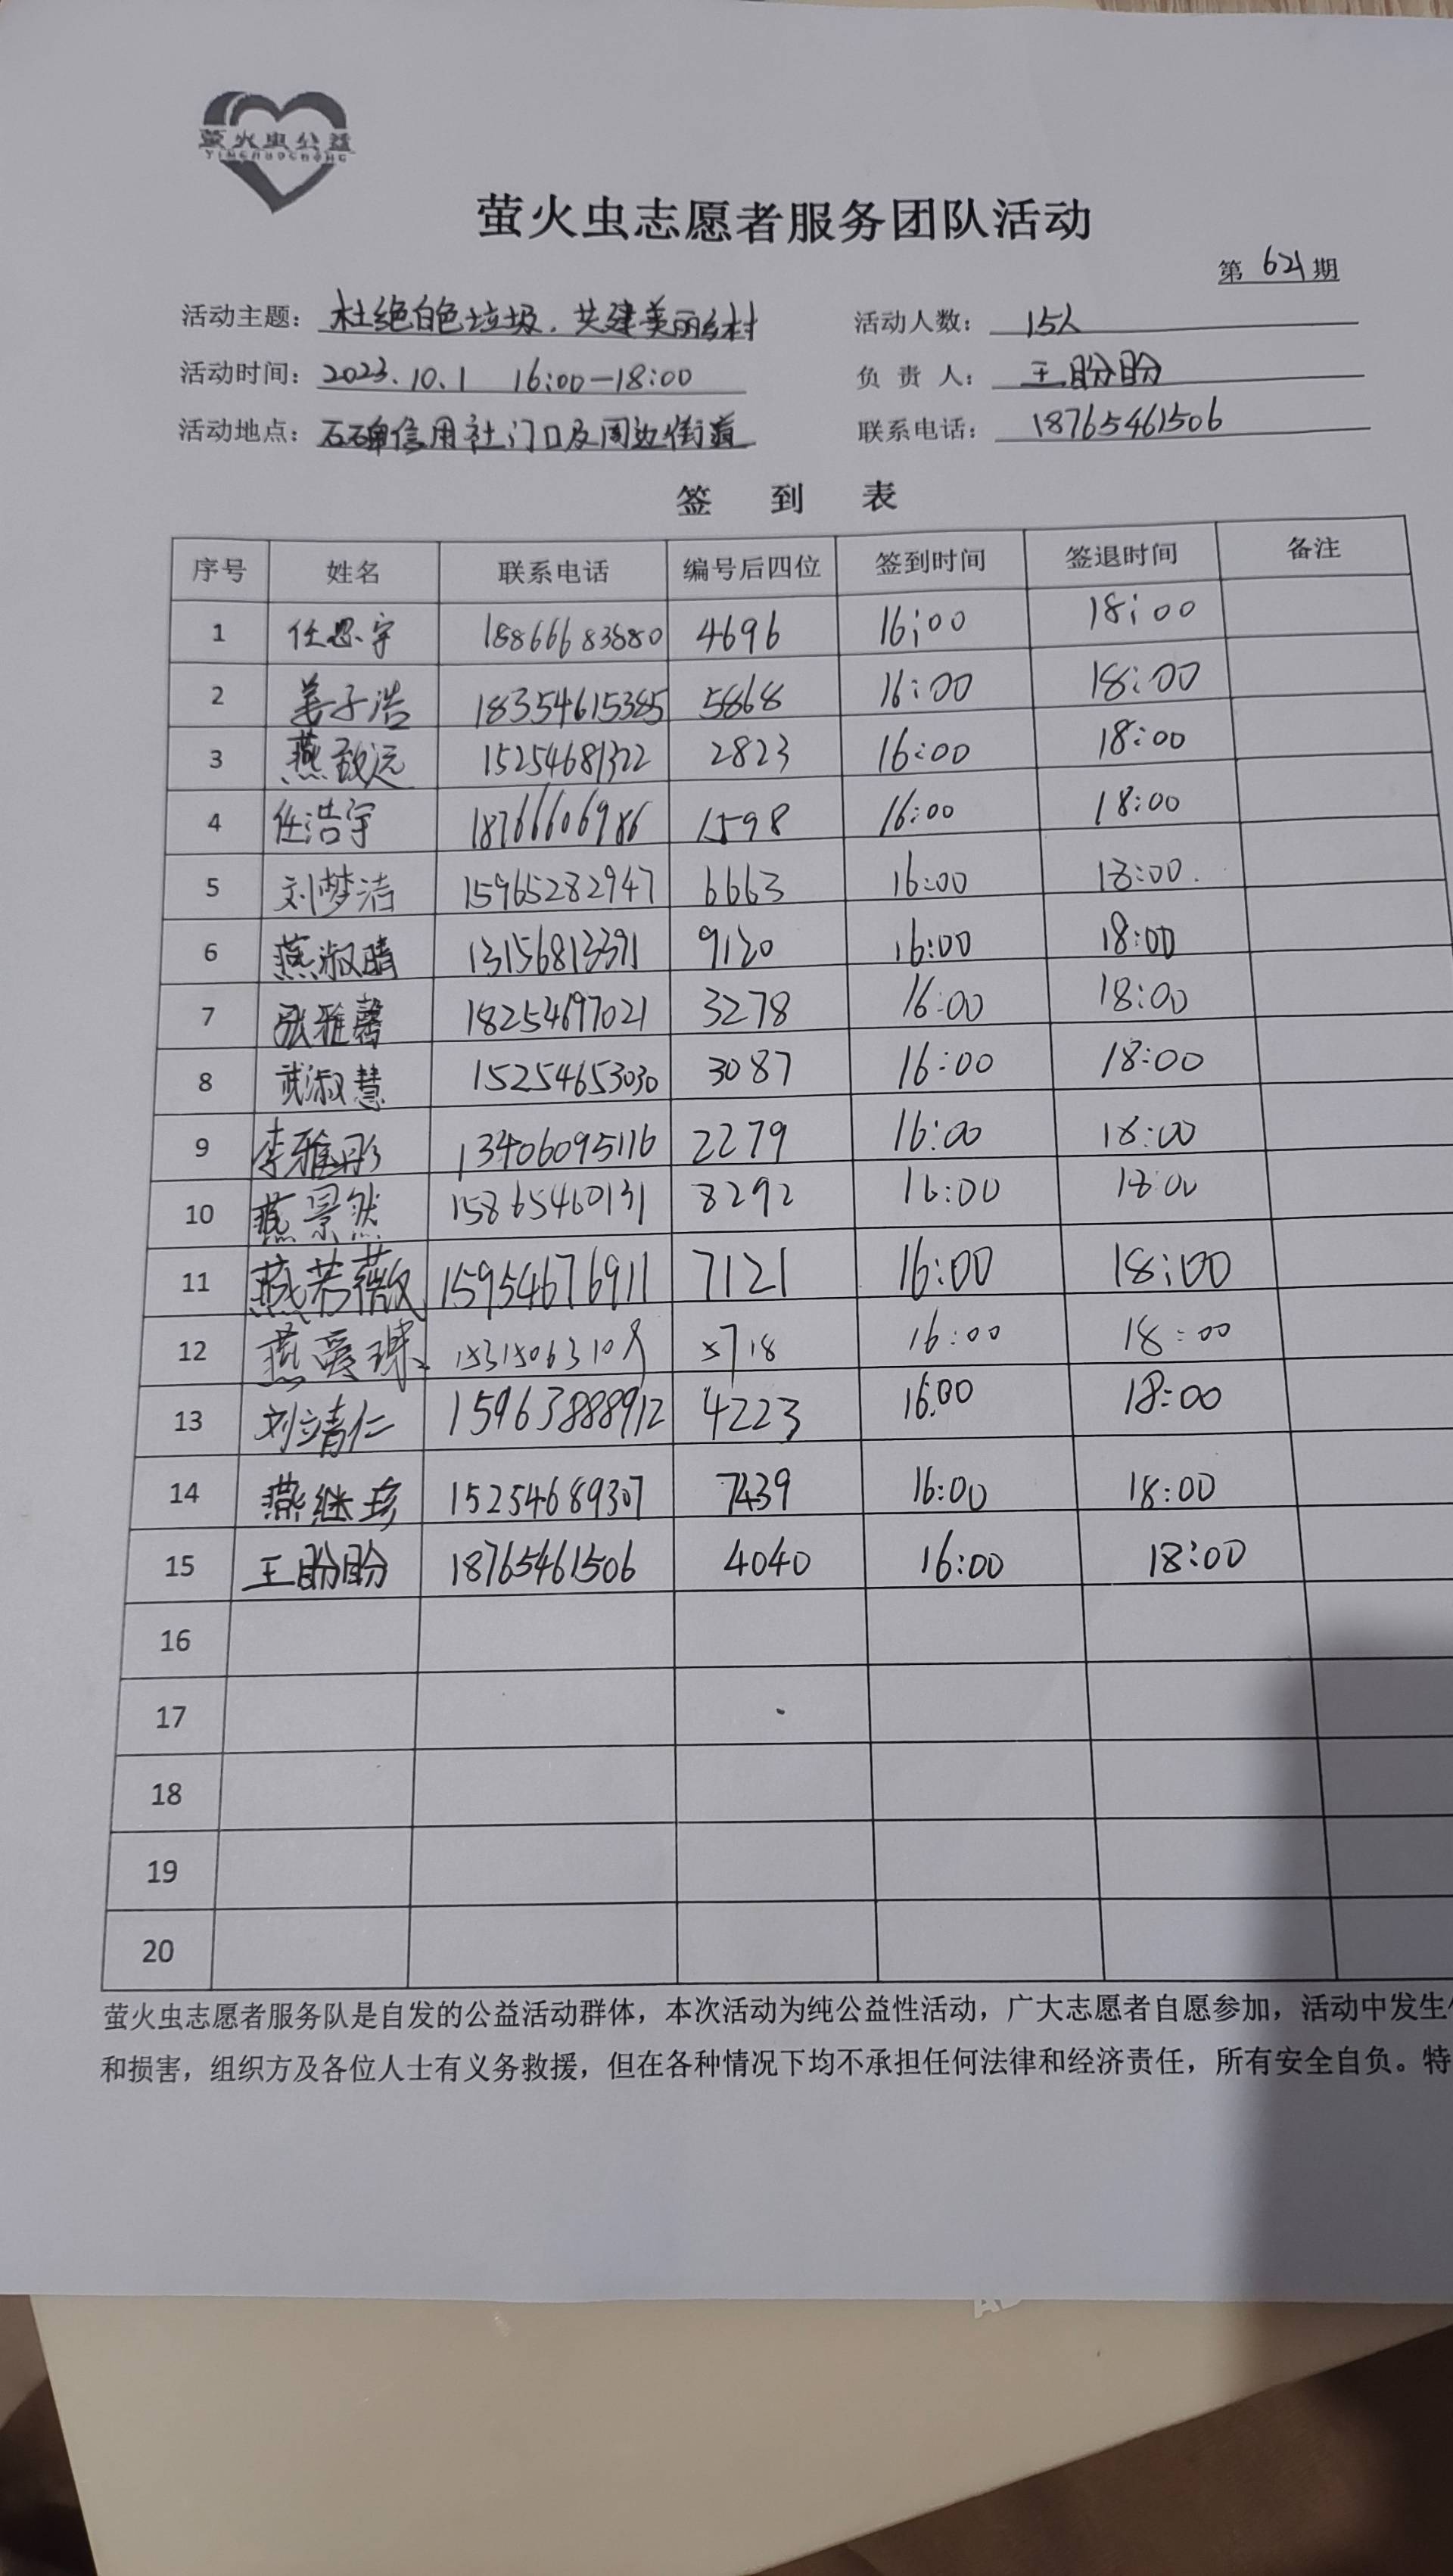 萤火虫公益
YINGHUOCHONG
萤火虫志愿者服务团队活动
第 621 期
活动主题：杜绝白色垃圾，共建美丽乡村 活动人数：15人
活动时间：2023.10.1 16:00—18:00 负责人：王盼盼
活动地点：石碑信用社门口及周边街道 联系电话：18765461506
签 到 表
序号 姓名 联系电话 编号后四位 签到时间 签退时间 备注
1 任思宇 4696 16:00 18:00
2 姜子浩 18354615385 5868 16:00 18:00
3 燕致远 15254681322 2823 16:00 18:00
4 任浩宇 18766606986 1598 16:00 18:00
5 刘梦洁 15965282947 6663 16:00 18:00.
6 燕淑晴 13156813391 9120 16:00 18:00
7 张雅馨 18254697021 3278 16:00 18:00
8 武淑慧 15254653030 3087 16:00 18:00
9 李雅彤 13406095116 2279 16:00 18:00
10 燕景然 15865460131 8292 16:00 18:00
11 燕若薇 15954676911 7121 16:00 18:00
12 燕爱珠 5718 16:00 18:00
13 刘靖仁 15963888912 4223 16:00 18:00
14 燕继珍 15254689307 7439 16:00 18:00
15 王盼盼 18765461506 4040 16:00 18:00
16
17
18
19
20
萤火虫志愿者服务队是自发的公益活动群体，本次活动为纯公益性活动，广大志愿者自愿参加，活动中发生
和损害，组织方及各位人士有义务救援，但在各种情况下均不承担任何法律和经济责任，所有安全自负。特